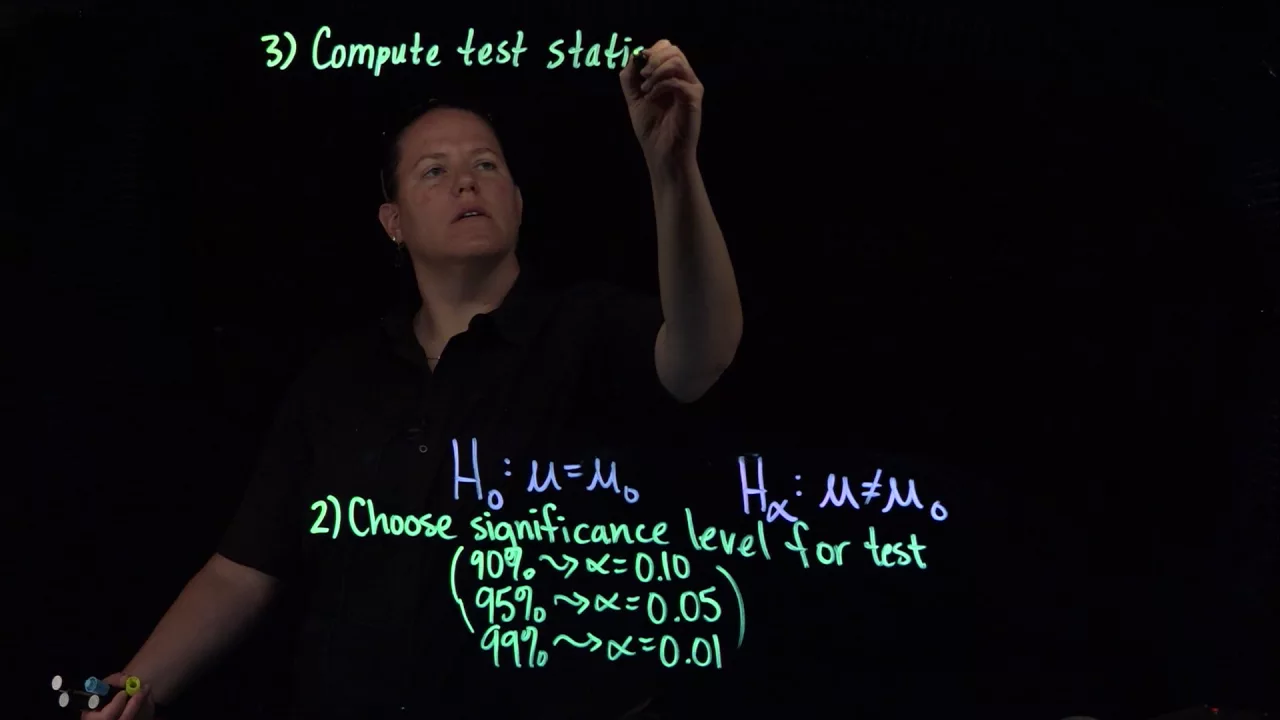 3) Compute test stati
H₀: μ = μ₀ Hα: μ ≠ μ₀
2) Choose significance level for test
(90% ⤳ α = 0.10
95% ⤳ α = 0.05)
99% ⤳ α = 0.01